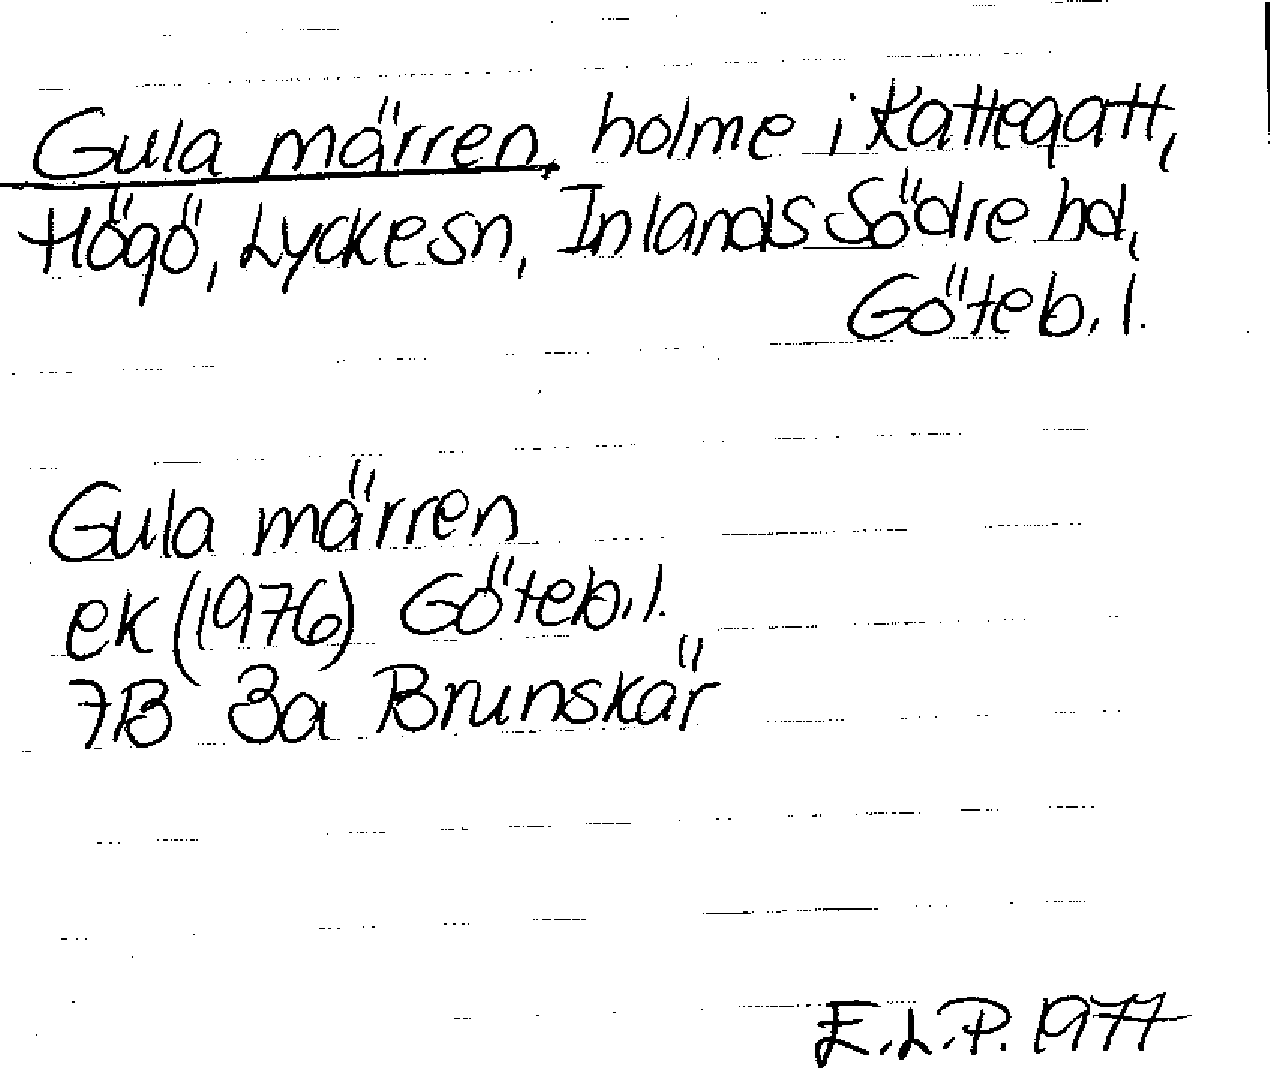 Gula märren, holme i Kattegatt,
Högö, Lyckesn, Inlands Södre hd,
Göteb. l.
Gula märren
ek (1976) Göteb. l.
7B 3a Brunskär
E.L.P. 1977